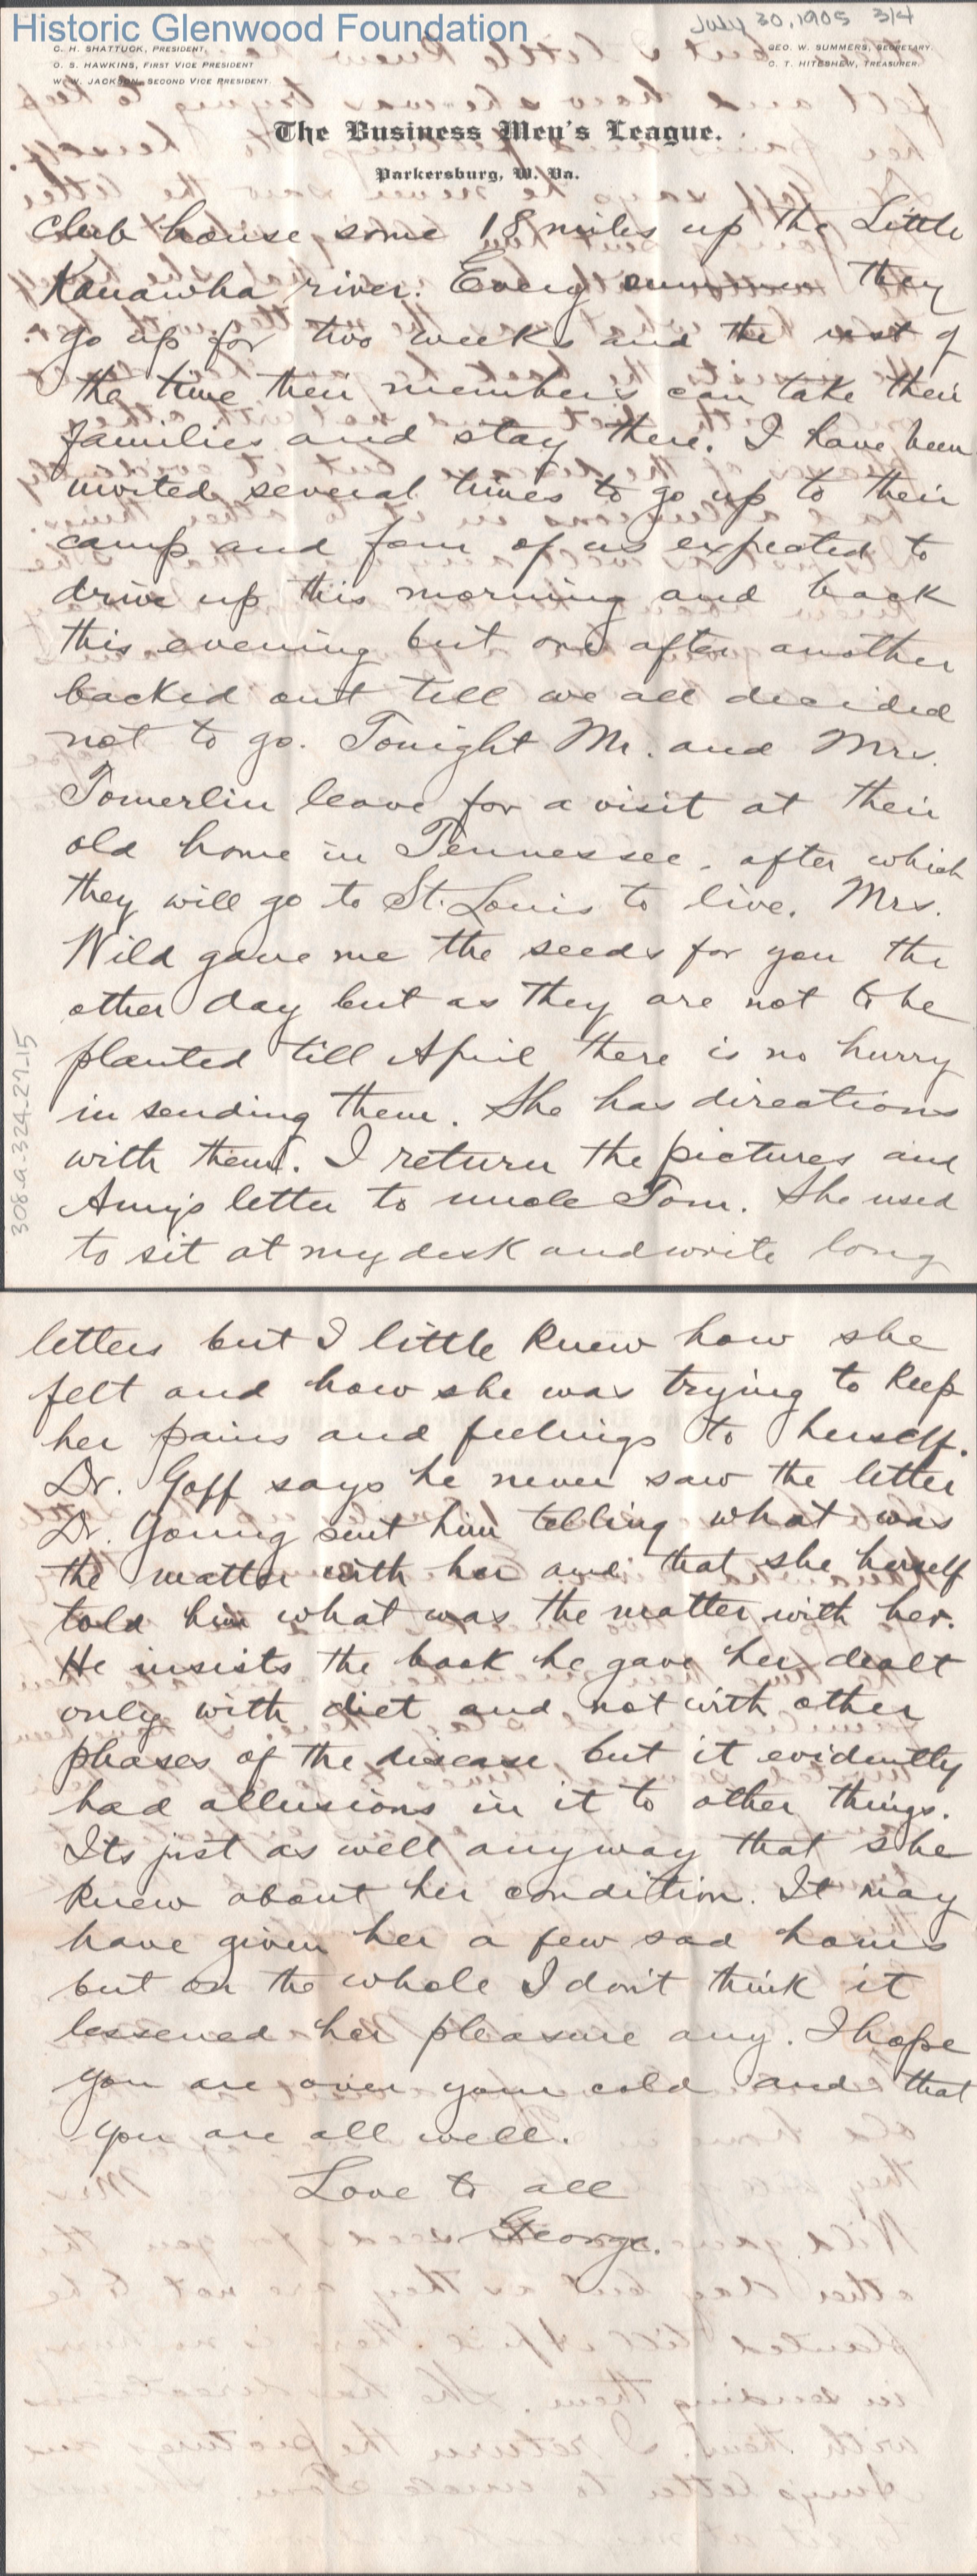 Historic Glenwood Foundation
July 30, 1905 3/4
C. H. SHATTUCK, PRESIDENT.
O. S. HAWKINS, FIRST VICE PRESIDENT
W. W. JACKSON, SECOND VICE PRESIDENT.
GEO. W. SUMMERS, SECRETARY.
C. T. HITESHEW, TREASURER.
The Business Men's League.
Parkersburg, W. Va.
club house some 18 miles up the Little
Kanawha river. Every summer they
go up for two weeks and the rest of
the time their members can take their
families and stay there. I have been
invited several times to go up to their
camp and four of us expected to
drive up this morning and back
this evening but one after another
backed out till we all decided
not to go. Tonight Mr. and Mrs.
Tomerlin leave for a visit at their
old home in Tennessee, after which
they will go to St. Louis to live. Mrs.
Wild gave me the seeds for you the
other day but as they are not to be
planted till April there is no hurry
in sending them. She has directions
with them. I return the pictures and
Amy's letter to uncle Tom. She used
to sit at my desk and write long
308.a.324-27-15
letters but I little knew how she
felt and how she was trying to keep
her pains and feelings to herself.
Dr. Goff says he never saw the letter
Dr. Young sent him telling what was
the matter with her and that she herself
told him what was the matter with her.
He insists the book he gave her dealt
only with diet and not with other
phases of the disease but it evidently
had allusions in it to other things.
Its just as well anyway that she
knew about her condition. It may
have given her a few sad hours
but on the whole I don't think it
lessened her pleasure any. I hope
you are over your cold and that
you are all well.
Love to all
George.